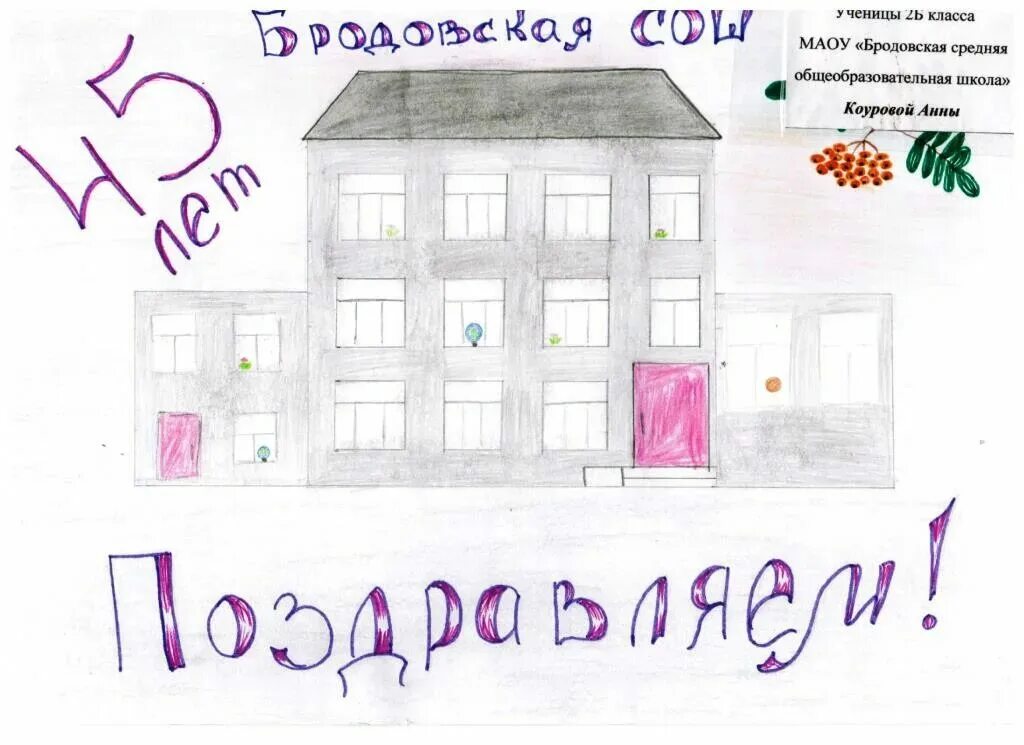 Бродовская СОШ
Ученицы 2Б класса
МАОУ «Бродовская средняя
общеобразовательная школа»
Коуровой Анны
45
лет
Поздравляем!